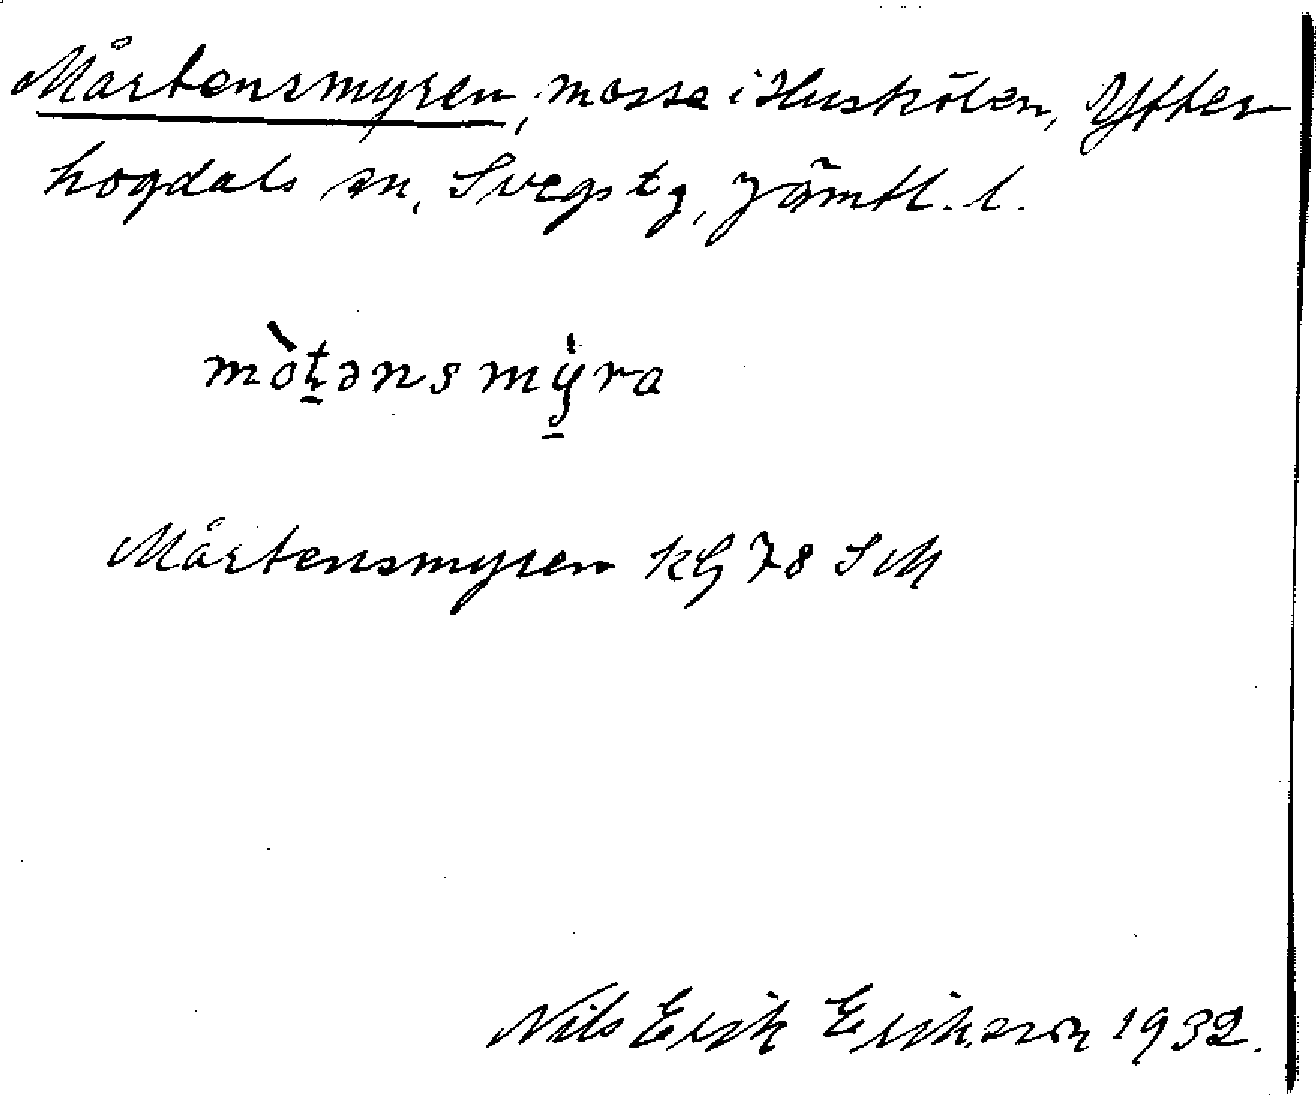 Mårtensmyren, mosse i Huskölen, Ytter
hogdals sn, Svegs tg, Jämtl. l.
mòt̠ənsmy̠ra
Mårtensmyren kG 78 SM
Nils Erik Erikson 1932.